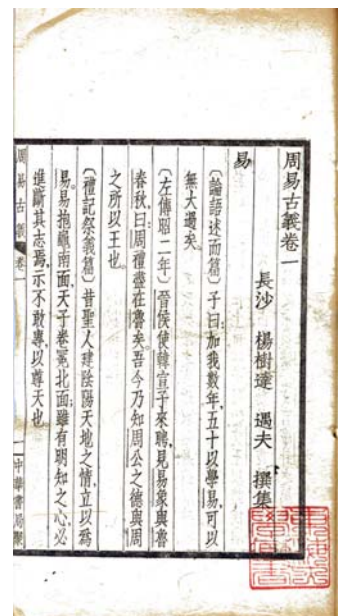 周易古義卷一
長沙 楊樹達 遇夫 撰集
易
〔論語述而篇〕子曰加我數年五十以學易可以
無大過矣。
〔左傳昭二年〕晉侯使韓宣子來聘，見易象與魯
春秋，曰：周禮盡在魯矣。吾今乃知周公之德與周
之所以王也。
〔禮記祭義篇〕昔聖人建陰陽天地之情，立以爲
易。易抱龜南面，天子卷冕北面，雖有明知之心，必
進斷其志焉，示不敢專，以尊天也。
周易古義 卷一 一 中華書局聚